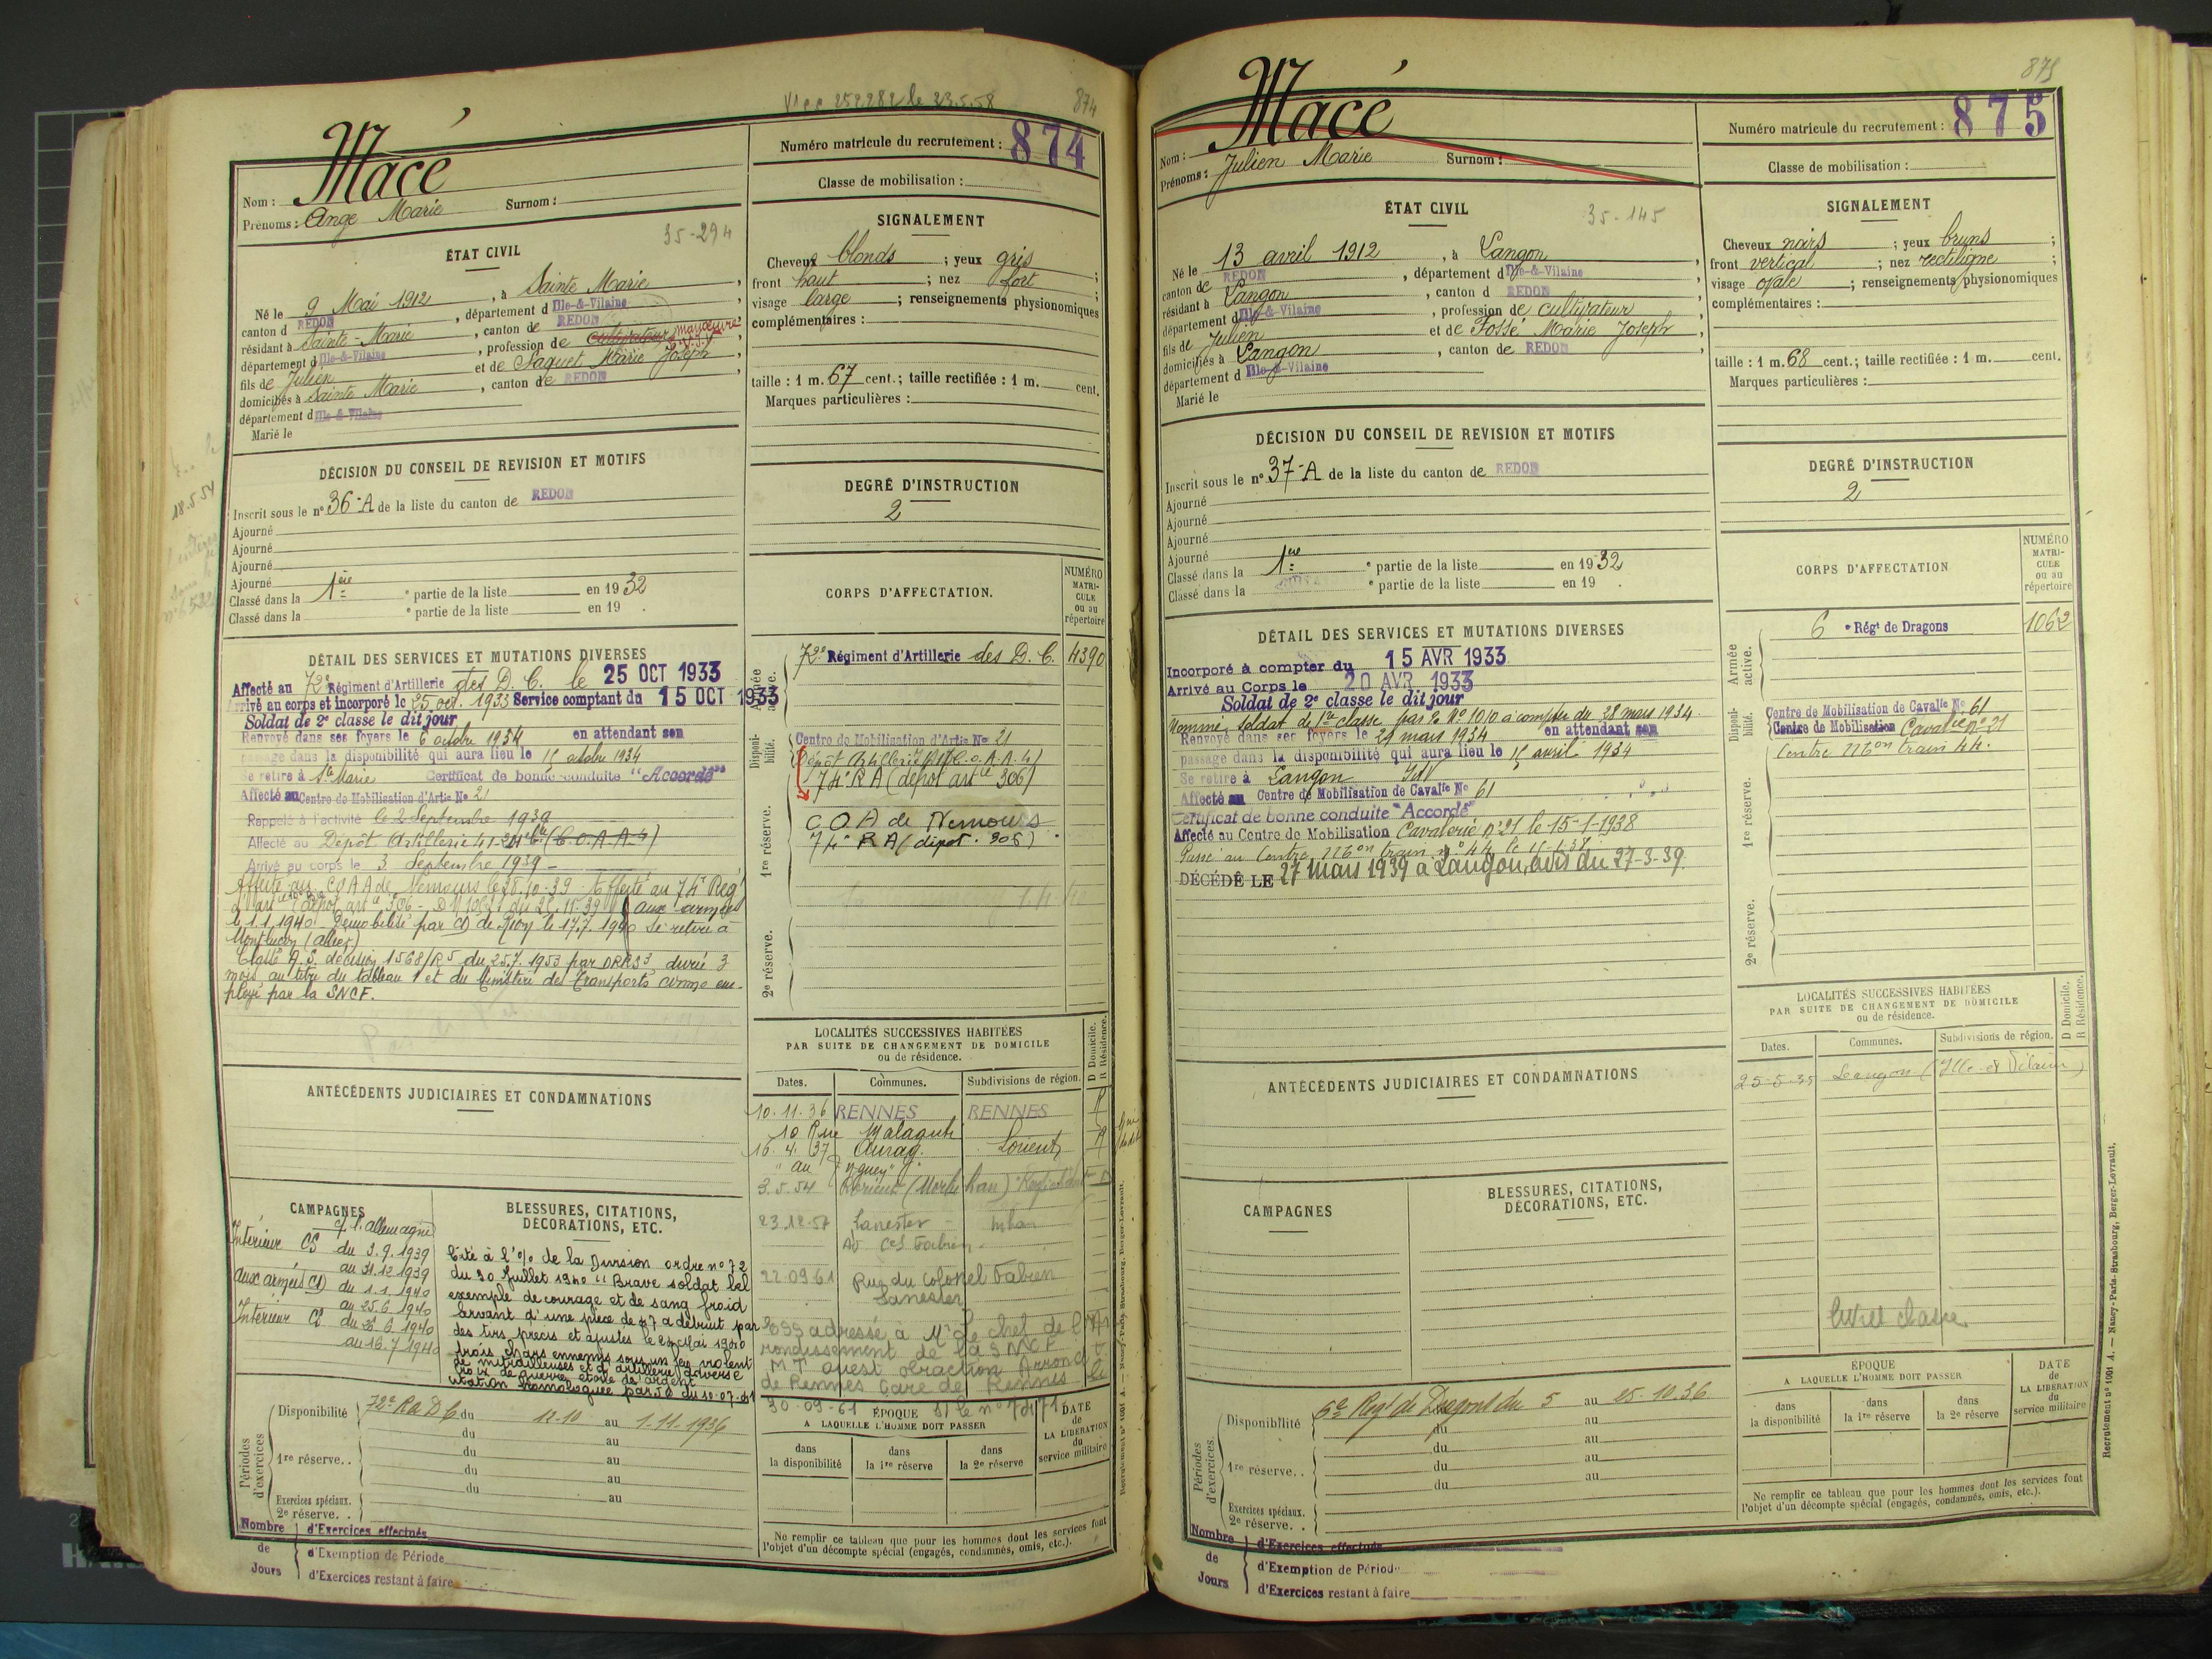 Vu cc 252282 le 23.5.58
874
Macé
Nom :
Prénoms : Ange Marie Surnom :
35-294
ÉTAT CIVIL
Né le 9 Mai 1912, à Sainte Marie,
canton d REDON, département d Ille-&-Vilaine,
résidant à Sainte-Marie, canton de REDON,
département d Ille-&-Vilaine, profession de cultivateur manœuvre
fils de Julien et de Saquet Marie Joseph,
domiciliés à Sainte Marie, canton de REDON,
département d Ille-&-Vilaine
Marié le
DÉCISION DU CONSEIL DE REVISION ET MOTIFS
Inscrit sous le n° 36-A de la liste du canton de REDON
Ajourné
Ajourné
Ajourné
Ajourné
Classé dans la 1ère ° partie de la liste en 1932
Classé dans la ° partie de la liste en 19 .
DÉTAIL DES SERVICES ET MUTATIONS DIVERSES
Affecté au 72e Régiment d'Artillerie des D. C. le 25 OCT 1933
Arrivé au corps et incorporé le 25 oct. 1933 Service comptant du 15 OCT 1933
Soldat de 2e classe le dit jour
Renvoyé dans ses foyers le 6 octobre 1934 en attendant son
passage dans la disponibilité qui aura lieu le 15 octobre 1934
Se retire à Ste Marie Certificat de bonne conduite "Accordé"
Affecté au Centre de Mobilisation d'Artie No 21
Rappelé à l'activité le 2 Septembre 1939
Affecté au Dépôt Artillerie 41 (C.O.A.A.4)
Arrivé au corps le 3 Septembre 1939 -
Affecté au COAA de Nemours le 28.10.39. Affecté au 74e Reg
d'artie (dépôt artie 306 - aux armées
le 1.1.1940. Démobilisé par CD de Riom le 17.7.1940 se retire à
Montluçon (Allier)
Classé A.S. décision 1568/RS du 25.7.1953 par DRRS3, durée 3
mois au titre du tableau 1 et du Ministère des Transports comme em-
ployé par la SNCF.
ANTÉCÉDENTS JUDICIAIRES ET CONDAMNATIONS
CAMPAGNES
c/ l'Allemagne
Intérieur CS du 3.9.1939
au 31.12.1939
aux armées CD du 1.1.1940
au 25.6.1940
Intérieur CS du 26.6.1940
au 16.7.1940
BLESSURES, CITATIONS,
DÉCORATIONS, ETC.
Cité à l'O/ de la Division ordre n° 72
du 30 Juillet 1940 "Brave soldat bel
exemple de courage et de sang froid
servant d'une pièce de 47 a détruit par
des tirs précis et ajustés le Mai 1940
trois chars ennemis sous un feu violent
de mitrailleuses et d'artillerie adverse
Croix de guerre étoile de argent
citation homologuée par
Périodes d'exercices
Disponibilité 72e R a D C du 12-10 au 1.11.1936
du au
1re réserve. . du au
du au
du au
Exercices spéciaux.
2e réserve. . au
Nombre de Jours
d'Exercices effectués
d'Exemption de Période
d'Exercices restant à faire
Numéro matricule du recrutement : 874
Classe de mobilisation :
SIGNALEMENT
Cheveux blonds ; yeux gris ;
front haut ; nez fort ;
visage large ; renseignements physionomiques
complémentaires :
taille : 1 m. 67 cent.; taille rectifiée : 1 m. cent.
Marques particulières :
DEGRÉ D'INSTRUCTION
2
CORPS D'AFFECTATION.
NUMÉRO MATRI-CULE ou au répertoire
Armée active.
72e Régiment d'Artillerie des D. C. 4390
Disponi-bilité.
Centre de Mobilisation d'Artie No 21
74e RA (dépôt artie 306)
1re réserve.
C.O.A de Nemours
74e RA (dépôt . 306)
2e réserve.
LOCALITÉS SUCCESSIVES HABITÉES
PAR SUITE DE CHANGEMENT DE DOMICILE
ou de résidence.
D Domicile.
R Résidence.
Dates. Communes. Subdivisions de région.
10.11.36 RENNES RENNES R
10 Rue Malaguti
16.4.37 Auray Lorient R
3.5.54 Lorient (Morbihan)
23.12.57 Lanester - mban
AV Cel Fabien
22.09.61 Rue du Colonel Fabien
Lanester
adressé à Mr Le chef de l'Ar
rondissement de la SNCF
MT ouest traction Arrond
de Rennes Gare de Rennes
30.09.61
ÉPOQUE
A LAQUELLE L'HOMME DOIT PASSER
DATE de LA LIBÉRATION du service militaire
dans la disponibilité
dans la 1re réserve
dans la 2e réserve
Ne remplir ce tableau que pour les hommes dont les services font
l'objet d'un décompte spécial (engagés, condamnés, omis, etc.).
875
Macé
Nom :
Prénoms : Julien Marie Surnom :
35-145
ÉTAT CIVIL
Né le 13 avril 1912, à Langon,
canton de REDON, département d Ille-&-Vilaine
résidant à Langon, canton d REDON
département d Ille-&-Vilaine, profession de cultivateur
fils de Julien et de Fossé Marie Joseph,
domiciliés à Langon, canton de REDON
département d Ille-&-Vilaine
Marié le
DÉCISION DU CONSEIL DE REVISION ET MOTIFS
Inscrit sous le n° 37-A de la liste du canton de REDON
Ajourné
Ajourné
Ajourné
Ajourné
Classé dans la 1ère ° partie de la liste en 1932
Classé dans la ° partie de la liste en 19 .
DÉTAIL DES SERVICES ET MUTATIONS DIVERSES
Incorporé à compter du 15 AVR 1933
Arrivé au Corps le 20 AVR 1933
Soldat de 2e classe le dit jour
Nommé soldat de 1re classe par No 1010 à compter du 28 mars 1934
Renvoyé dans ses foyers le 29 mars 1934 en attendant son
passage dans la disponibilité qui aura lieu le 15 avril 1934
Se retire à Langon I&V
Affecté au Centre de Mobilisation de Cavalie No 61
Certificat de bonne conduite "Accordé"
Affecté au Centre de Mobilisation Cavalerie n° 21 le 15-1-1938
Passé au Centre Mbon train n° 44 le
DÉCÉDÉ LE 27 mars 1939 à Langon, avis du 27-3-39.
ANTÉCÉDENTS JUDICIAIRES ET CONDAMNATIONS
CAMPAGNES
BLESSURES, CITATIONS,
DÉCORATIONS, ETC.
Périodes d'exercices.
Disponibilité 6e Regt de Dragons du 5 au 25-10.36
du au
1re réserve. . du au
du au
du au
Exercices spéciaux.
2e réserve. .
Nombre de Jours
d'Exercices effectués
d'Exemption de Période
d'Exercices restant à faire
Numéro matricule du recrutement : 875
Classe de mobilisation :
SIGNALEMENT
Cheveux noirs ; yeux bruns ;
front vertical ; nez rectiligne ;
visage ovale ; renseignements physionomiques
complémentaires :
taille : 1 m. 68 cent.; taille rectifiée : 1 m. cent.
Marques particulières :
DEGRÉ D'INSTRUCTION
2
CORPS D'AFFECTATION
NUMÉRO MATRI-CULE ou au répertoire
Armée active.
6 e Régt de Dragons 1062
Disponi-bilité.
Centre de Mobilisation de Cavalie No 61
Centre de Mobilisation Cavalerie n° 21
Centre Mbon train 44.
1re réserve.
2e réserve.
LOCALITÉS SUCCESSIVES HABITÉES
PAR SUITE DE CHANGEMENT DE DOMICILE
ou de résidence.
D Domicile.
R Résidence.
Dates. Communes. Subdivisions de région.
25-5-35 Langon (Ille et Vilaine)
ÉPOQUE
A LAQUELLE L'HOMME DOIT PASSER
DATE de LA LIBÉRATION du service militaire
dans la disponibilité
dans la 1re réserve
dans la 2e réserve
Ne remplir ce tableau que pour les hommes dont les services font
l'objet d'un décompte spécial (engagés, condamnés, omis, etc.).
Recrutement n° 1001 A. — Nancy-Paris-Strasbourg, Berger-Levrault.